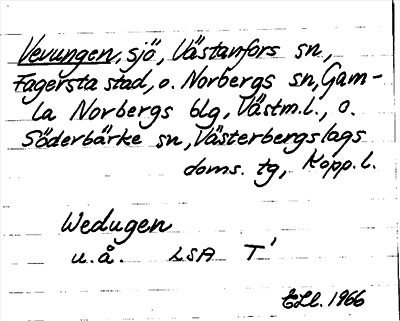 Vevungen, sjö, Västanfors sn,
Fagersta stad, o. Norbergs sn, Gam-
la Norbergs blg, Västm.l., o.
Söderbärke sn, Västerbergslags
doms. tg, Kopp.l.
Wedugen
u.å. LSA T'
ELl. 1966